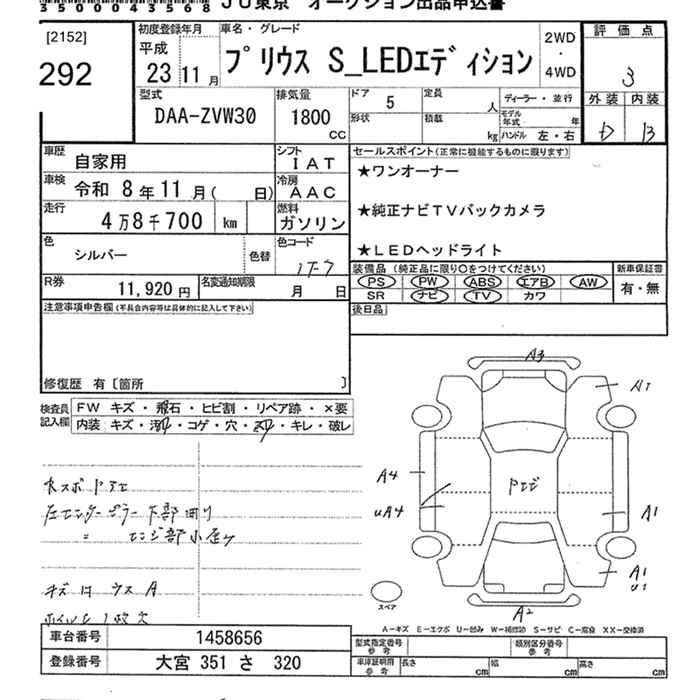 35000043568 ＪＵ東京 オークション出品申込書
[2152]
292
初度登録年月
平成
23 11 月
車名・グレード
プリウス S_LEDエディション
2WD
・
4WD
評価点
3
外装 内装
D B
型式
DAA-ZVW30
排気量
1800
CC
ドア 5
定員 人
形状
積載 kg
ディーラー・並行
モデル年式 年
ハンドル 左・右
車歴 自家用
シフト IAT
車検 令和 8年11月( 日)
冷房 AAC
走行 4万8千700 km
燃料 ガソリン
色 シルバー
色替
色コード 1F7
R券 11,920円
名変通知期限 月 日
セールスポイント(正常に機能するものに限ります)
★ワンオーナー
★純正ナビTVバックカメラ
★LEDヘッドライト
装備品(純正品に限り○をつけてください)
PS PW ABS エアB AW
SR ナビ TV カワ
新車保証書
有・無
後日品
注意事項申告欄(不具合内容等は具体的に記入して下さい)
修復歴 有〔箇所 〕
検査員記入欄
FW キズ・飛石・ヒビ割・リペア跡・×要
内装:キズ・汚・コゲ・穴・・キレ・破レ
左センターピラー下部曲り
キズ ウス A
A3
A1
A4
UA4
A1
A1
U1
A2
スペア
A-キズ E-エクボ U-凹み W-補修跡 S-サビ C-腐食 XX-交換済
車台番号 1458656
登録番号 大宮 351 さ 320
型式指定番号 参考
類別区分番号 参考
車庫証明用 参考
長さ cm
幅 cm
高さ cm